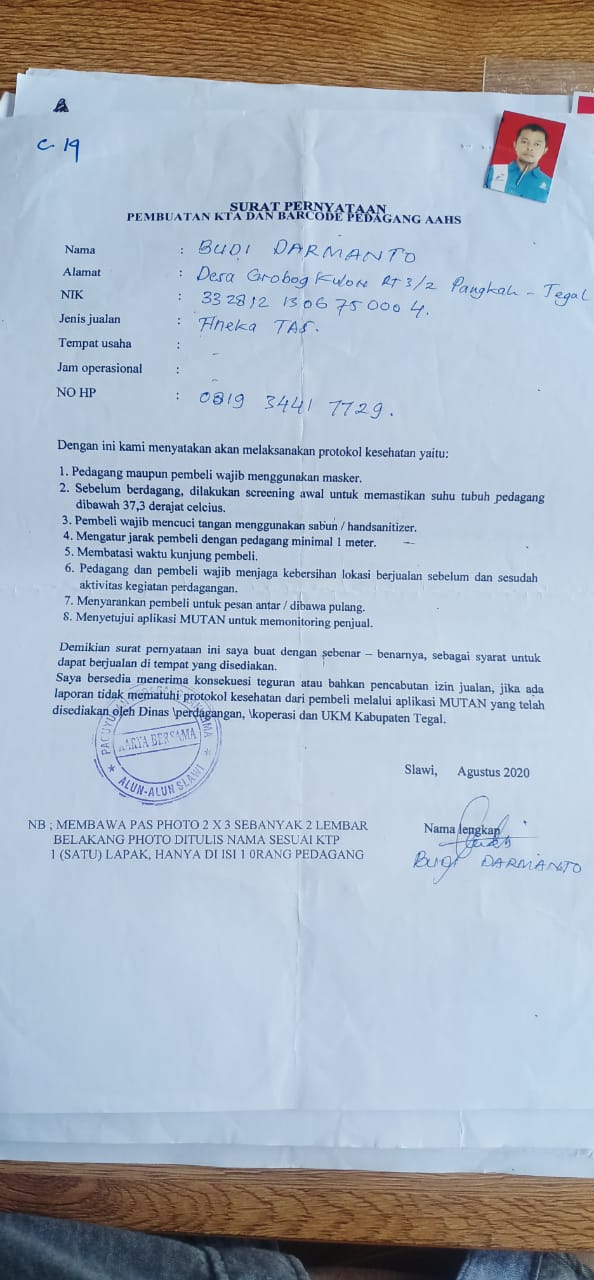 C 19
SURAT PERNYATAAN
PEMBUATAN KTA DAN BARCODE PEDAGANG AAHS
Nama : BUDI DARMANTO
Alamat : Desa Grobog Kulon RT 3/2 Pangkah - Tegal
NIK : 33 2812 1306 75 000 4.
Jenis jualan : Aneka TAS.
Tempat usaha : -
Jam operasional : -
NO HP : 0819 3441 7729.
Dengan ini kami menyatakan akan melaksanakan protokol kesehatan yaitu:
1. Pedagang maupun pembeli wajib menggunakan masker.
2. Sebelum berdagang, dilakukan screening awal untuk memastikan suhu tubuh pedagang
dibawah 37,3 derajat celcius.
3. Pembeli wajib mencuci tangan menggunakan sabun / handsanitizer.
4. Mengatur jarak pembeli dengan pedagang minimal 1 meter.
5. Membatasi waktu kunjung pembeli.
6. Pedagang dan pembeli wajib menjaga kebersihan lokasi berjualan sebelum dan sesudah
aktivitas kegiatan perdagangan.
7. Menyarankan pembeli untuk pesan antar / dibawa pulang.
8. Menyetujui aplikasi MUTAN untuk memonitoring penjual.
Demikian surat pernyataan ini saya buat dengan sebenar – benarnya, sebagai syarat untuk
dapat berjualan di tempat yang disediakan.
Saya bersedia menerima konsekuesi teguran atau bahkan pencabutan izin jualan, jika ada
laporan tidak mematuhi protokol kesehatan dari pembeli melalui aplikasi MUTAN yang telah
disediakan oleh Dinas \perdagangan, \koperasi dan UKM Kabupaten Tegal.
KARYA BERSAMA
ALUN-ALUN SLAWI
Slawi, Agustus 2020
NB ; MEMBAWA PAS PHOTO 2 X 3 SEBANYAK 2 LEMBAR
BELAKANG PHOTO DITULIS NAMA SESUAI KTP
1 (SATU) LAPAK, HANYA DI ISI 1 0RANG PEDAGANG
Nama lengkap
BUDI DARMANTO